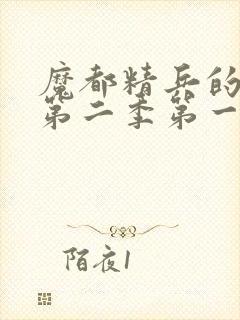 魔都精兵的
第二季第一
陌夜1